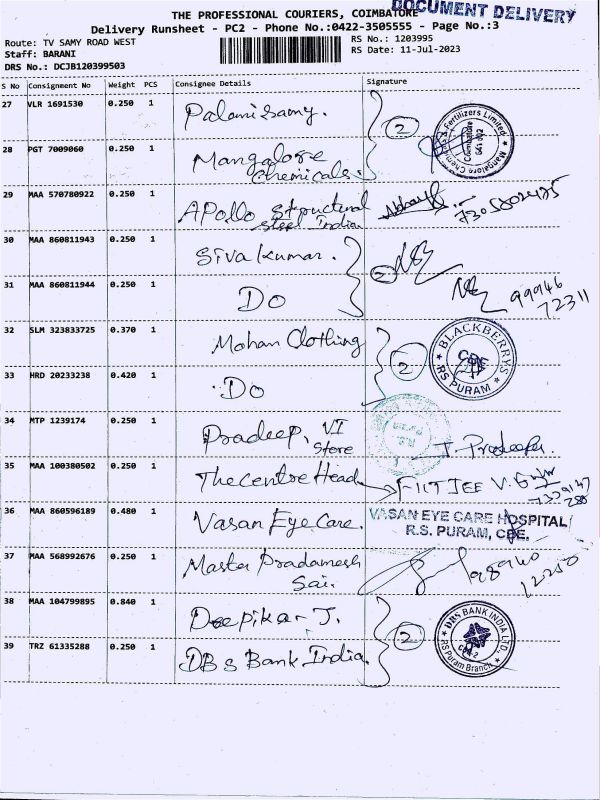 DOCUMENT DELIVERY
THE PROFESSIONAL COURIERS, COIMBATORE
Delivery Runsheet - PC2 - Phone No.:0422-3505555 - Page No.:3
Route: TV SAMY ROAD WEST
Staff: BARANI
DRS No.: DCJB120399503
RS No.: 1203995
RS Date: 11-Jul-2023
S No Consignment No Weight PCS Consignee Details Signature
27 VLR 1691530 0.250 1 Palanisamy.
2
28 PGT 7009060 0.250 1 Mangalore Chemicals.
29 MAA 570780922 0.250 1 Apollo Structural Steel India
30 MAA 860811943 0.250 1 Sivakumar.
2
31 MAA 860811944 0.250 1 Do
99946 72311
32 SLM 323833725 0.370 1 Mohan Clothing
2
BLACKBERRYS
RS PURAM
33 HRD 20233238 0.420 1 Do
34 MTP 1239174 0.250 1 Pradeep, VI Store
J. Pradeepa.
35 MAA 100380502 0.250 1 The Centre Head
FIITJEE
36 MAA 860596189 0.480 1 Vasan Eye Care.
VASAN EYE CARE HOSPITAL
R.S. PURAM, CBE.
37 MAA 568992676 0.250 1 Master Pradamesh Sai.
38 MAA 104799895 0.840 1 Deepika J.
2
DBS BANK INDIA LTD.,
RS Puram Branch
39 TRZ 61335288 0.250 1 DBS Bank India.